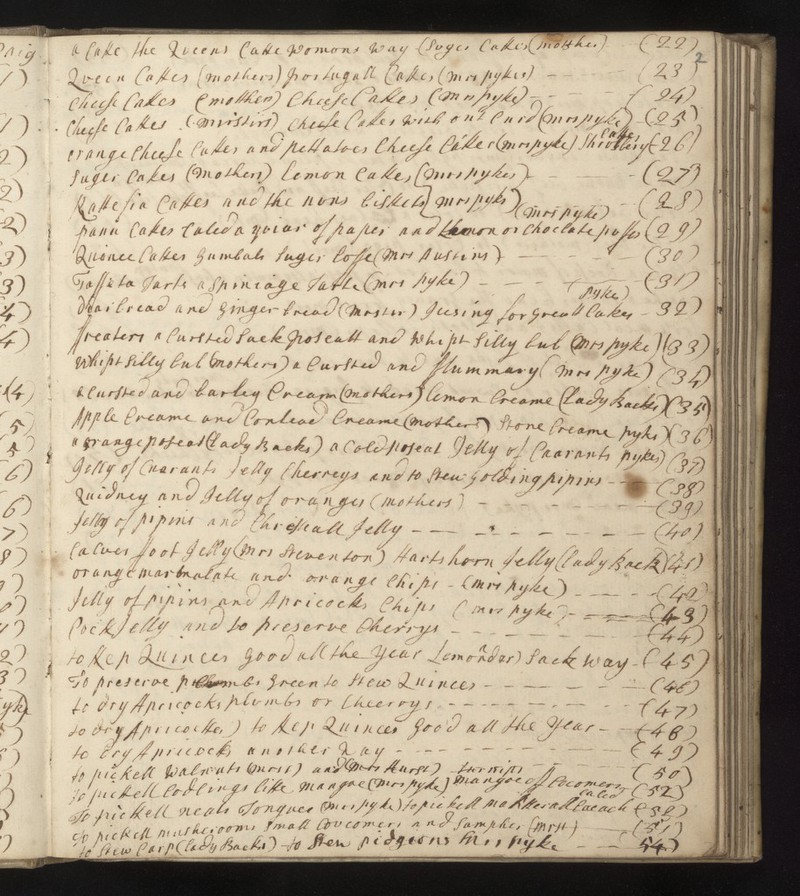 a Cake the Queens Cake womons way (Suger Cakes (mother) (22)
2
Queen Cakes (mothers) portugall Cakes (mrs pykes) (23)
Cheese Cakes (mothers) Cheese Cakes (mrs pyke) (24)
Cheese Cakes Cheese Cakes with out Curd (mrs pyke) (25)
orange Cheese Cakes and pettatoes Cheese Cakes (mrs pyke) Cake (26)
Suger Cakes (mothers) Lemon Cakes (mrs pykes) (27)
Rattesia Cakes and the nuns biskets (mrs pyks) (28)
pann Cakes Caled a quiar of paper and Lemon or Choclate puffs (mrs pyke) (29)
Quince Cakes Gumbals Suger Loffe (mrs Austins) (30)
Taffata Tarts a Spiniage Tarte (mrs pyke) (31)
bread and Ginger bread Jcesing for Great Cakes pyke) 32)
freaters a Cursted Sack poseatt and whipt Silly bub (mrs pyke) (33)
whipt Silly bub (mothers) a Cursted and flummary (mrs pyke) (34)
a Cursted and barley Cream (mothers) Lemon Creame (Lady Backs) (35)
Apple Creame and Creame (mothers) Stone Creame pyks) (36)
a orange poseat (Lady Backs) a Cold poseat Jelly of Caarants pykes) (37)
Jelly of Cuarants Jelly Cherreys and to Stew golding pipins (38)
Quidney and Jelly of oranges (mothers) (39)
Jelly of pipins and Jelly (40)
Calves foot Jelly (mrs Stevenson) Hartshorn Jelly (Lady Back) (41)
orange marmalate and orange Chips (mrs pyke) (42)
Jelly of pipins and Apricocks Chips (mrs pyke) (43)
Cock Jelly and to preserve Cherrys (44)
to Kep Quinces good all the year Sack way (45)
To preserve plumbs Green to Stew Quinces (46)
to dry Apricocks plumbs or Cheerrys (47)
to dry Apricockes) to Kep Quinces Good all the year (48)
to dry Apricocks another way (49)
to pickell walnuts and (mrs Hurst) turnips (50)
to pickell Codlings like mangoe (mrs pyke) mangoe of Cocomers (52)
To pickell neats Tongues (mrs pyke) to pickell Caled (52)
to pickell mushrooms Small Cowcomers and Sampher (51)
to Stew Carp (Lady Backs) to Stew pidgeons mrs pyke 54)